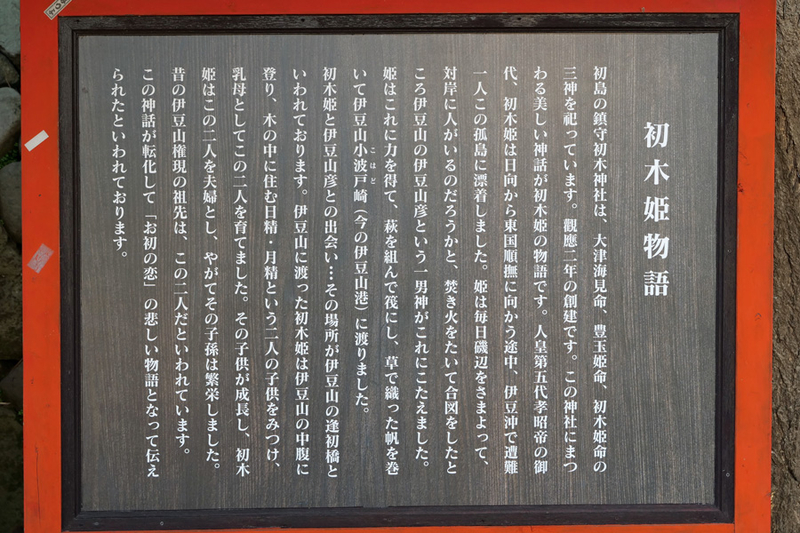 初木姫物語
初島の鎮守初木神社は、大津海見命、豊玉姫命、初木姫命の
三神を祀っています。觀應二年の創建です。この神社にまつ
わる美しい神話が初木姫の物語です。人皇第五代孝昭帝の御
代、初木姫は日向から東国順撫に向かう途中、伊豆沖で遭難
一人この孤島に漂着しました。姫は毎日磯辺をさまよって、
対岸に人がいるのだろうかと、焚き火をたいて合図をしたと
ころ伊豆山の伊豆山彦という一男神がこれにこたえました。
姫はこれに力を得て、萩を組んで筏にし、草で織った帆を巻
いて伊豆山小波戸崎（今の伊豆山港）に渡りました。
こはど
初木姫と伊豆山彦との出会い…その場所が伊豆山の逢初橋と
いわれております。伊豆山に渡った初木姫は伊豆山の中腹に
登り、木の中に住む日精・月精という二人の子供をみつけ、
乳母としてこの二人を育てました。その子供が成長し、初木
姫はこの二人を夫婦とし、やがてその子孫は繁栄しました。
昔の伊豆山権現の祖先は、この二人だといわれています。
この神話が転化して「お初の恋」の悲しい物語となって伝え
られたといわれております。